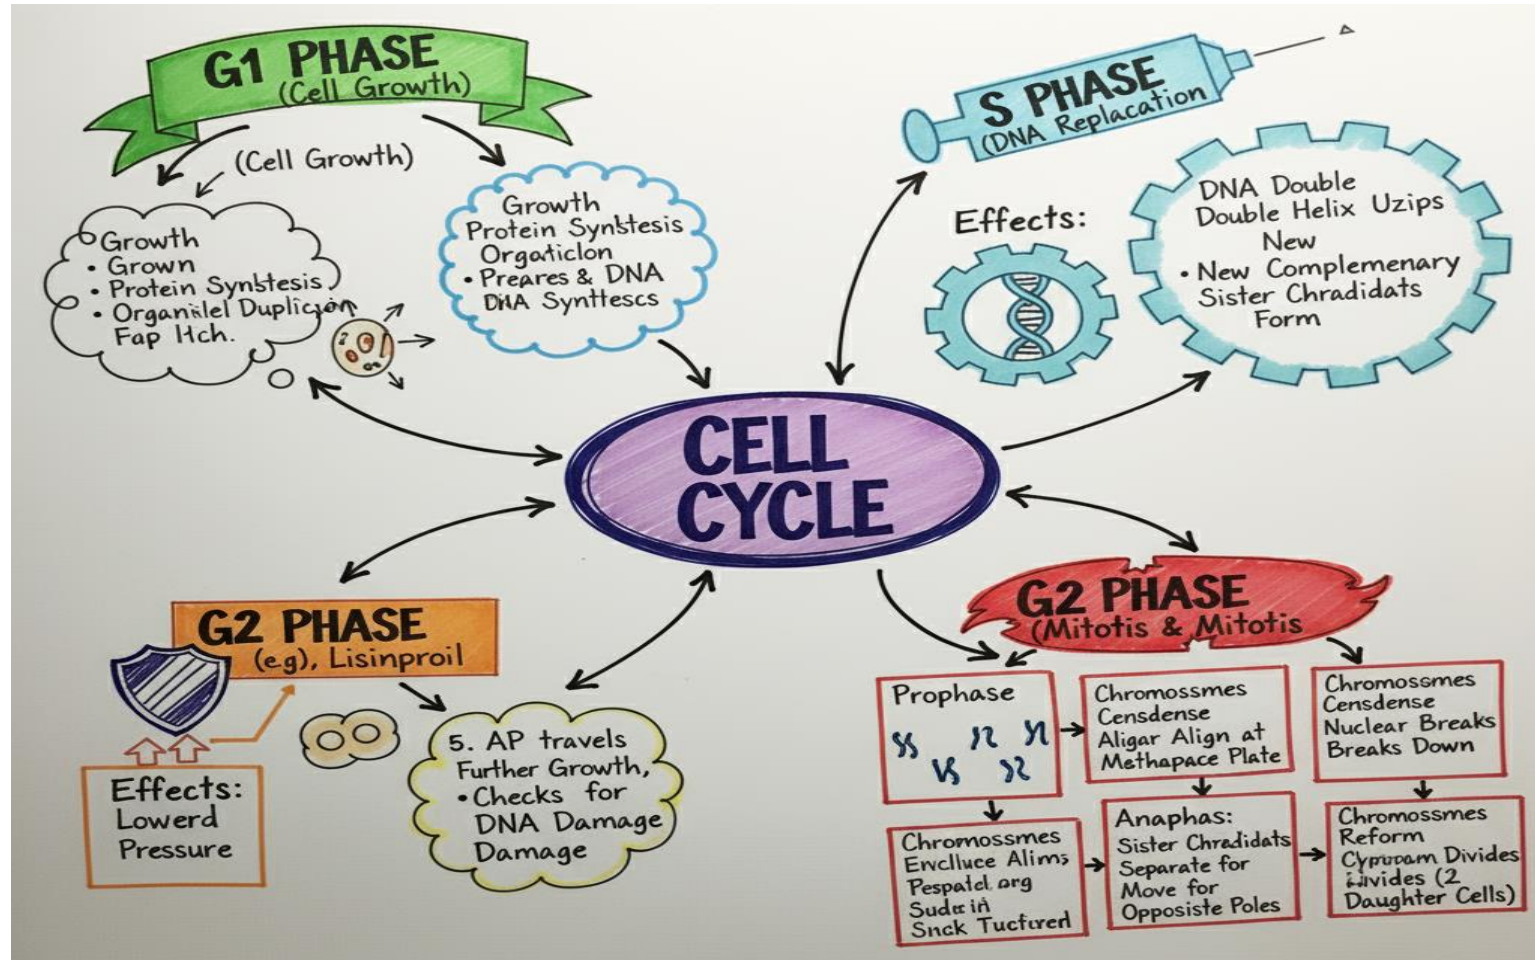 G1 PHASE
(Cell Growth)
(Cell Growth)
Growth
• Grown
• Protein Synbtesis
• Organilel Duplicjon
Fap Itch.
Growth
Protein Synbtesis
Orgaticlon
• Preares & DNA
DNA Synttescs
S PHASE
(DNA Replacation
Effects:
DNA Double
Double Helix Uzips
New
• New Complemenary
Sister Chradidats
Form
CELL
CYCLE
G2 PHASE
(e.g), Lisinproil
Effects:
Lowerd
Pressure
5. AP travels
Further Growth,
• Checks for
DNA Damage
Damage
G2 PHASE
(Mitotis & Mitotis
Prophase
Chromossmes
Censdense
Aligar Align at
Methapace Plate
Chromossmes
Censdense
Nuclear Breaks
Breaks Down
Chromossmes
Envlluce Alims
Pespatel org
Sude in
Snck Tuctured
Anaphas:
Sister Chradidats
Separate for
Move for
Opposiste Poles
Chromossmes
Reform
Divides
(2
Daughter Cells)